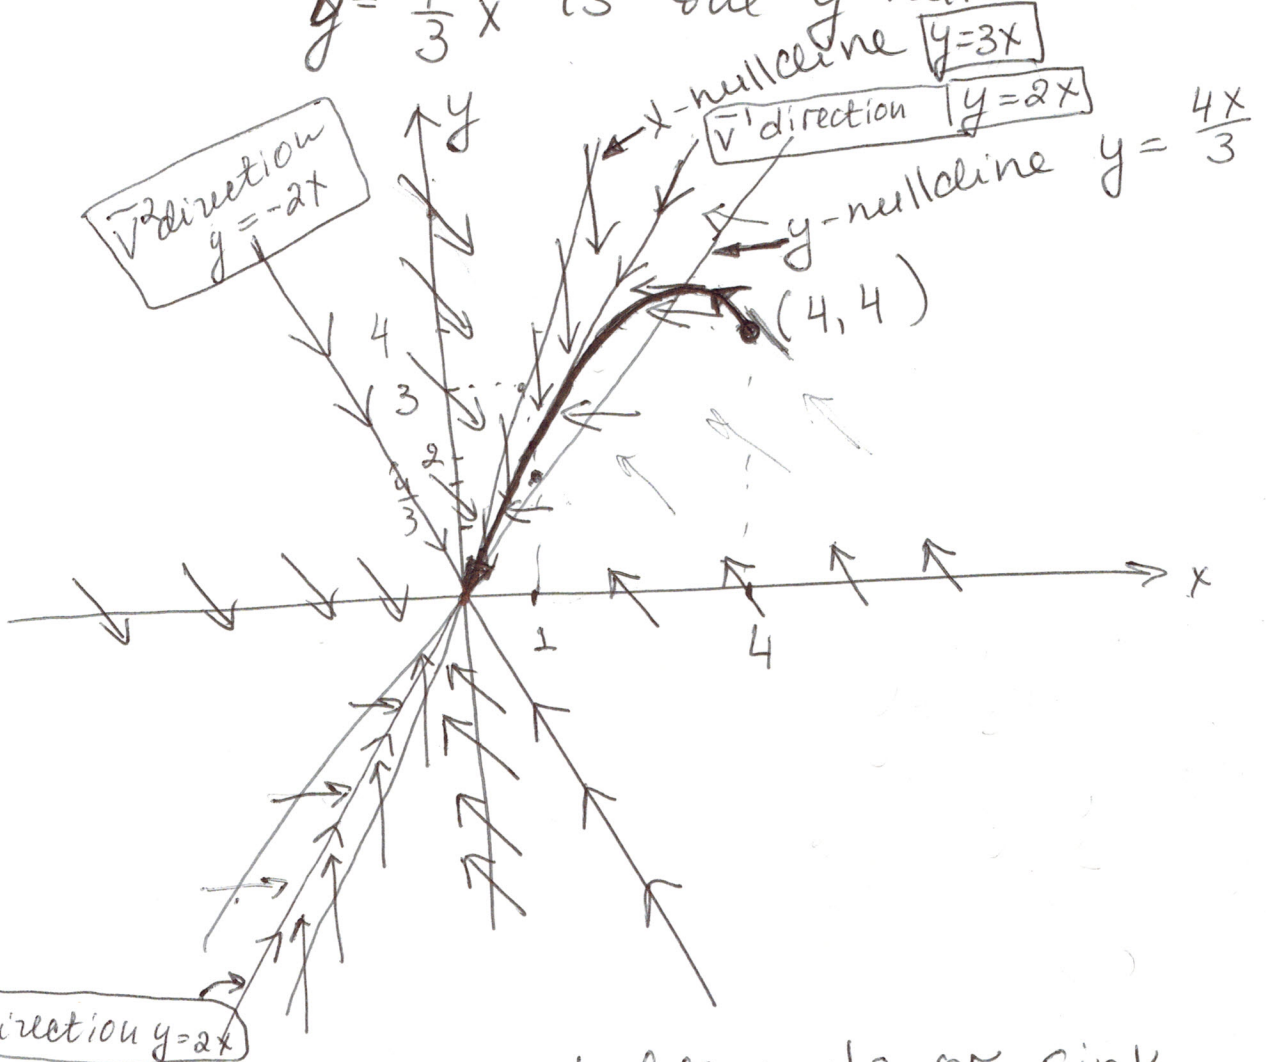 y = 4/3 x is
x-nullcline y=3x
v̄¹ direction y=2x
y-nullcline y = 4x/3
y
v̄² direction
y=-2x
(4,4)
4
3
2
4/3
x
1
4
irection y=2x